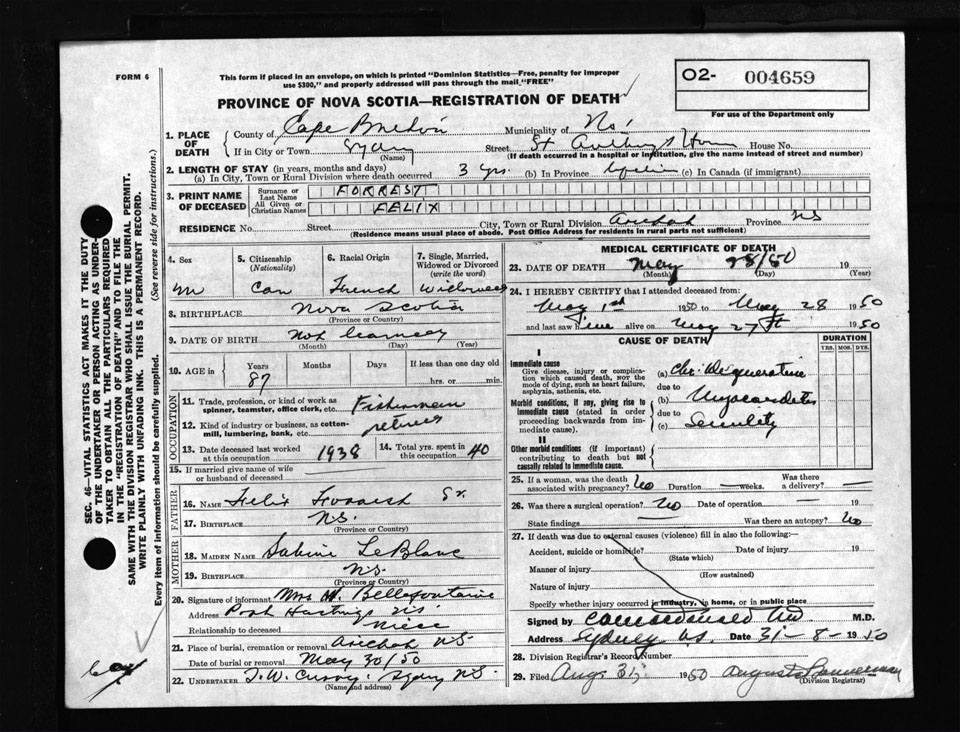 FORM 6
This form if placed in an envelope, on which is printed "Dominion Statistics—Free, penalty for improper
use $300," and properly addressed will pass through the mail "FREE"
O2- 004659
For use of the Department only
PROVINCE OF NOVA SCOTIA—REGISTRATION OF DEATH
1. PLACE OF DEATH
County of Cape Breton Municipality of NS
If in City or Town Sydney (Name) Street St Anthony's Home House No.
(If death occurred in a hospital or institution, give the name instead of street and number)
2. LENGTH OF STAY (in years, months and days)
(a) In City, Town or Rural Division where death occurred 3 yrs. (b) In Province Lifetime (c) In Canada (if immigrant)
3. PRINT NAME OF DECEASED
Surname or Last Name FORREST
All Given or Christian Names FELIX
RESIDENCE No. Street City, Town or Rural Division Arichat Province NS
(Residence means usual place of abode. Post Office Address for residents in rural parts not sufficient)
4. Sex 5. Citizenship (Nationality) 6. Racial Origin 7. Single, Married, Widowed or Divorced (write the word)
m Can French Widowed
8. BIRTHPLACE Nova Scotia
(Province or Country)
9. DATE OF BIRTH Not
(Month) (Day) (Year)
10. AGE in Years Months Days If less than one day old
87 hrs. or min.
OCCUPATION
11. Trade, profession, or kind of work as spinner, teamster, office clerk, etc. Fisherman
12. Kind of industry or business, as cotton-mill, lumbering, bank, etc. retired
13. Date deceased last worked at this occupation 1938 14. Total yrs. spent in this occupation 40
15. If married give name of wife or husband of deceased
FATHER
16. NAME Felix Forrest Sr.
17. BIRTHPLACE N.S.
(Province or Country)
MOTHER
18. MAIDEN NAME Sabine LeBlanc
19. BIRTHPLACE N.S.
(Province or Country)
20. Signature of informant Mrs W. Bellefontaine
Address Port Hastings NS
Relationship to deceased Niece
21. Place of burial, cremation or removal Arichat NS
Date of burial or removal May 30/50
22. UNDERTAKER T.W. Curry, Sydney NS.
(Name and address)
MEDICAL CERTIFICATE OF DEATH
23. DATE OF DEATH May 28/50 19
(Month) (Day) (Year)
24. I HEREBY CERTIFY that I attended deceased from:
May 1st 1950 to May 28 1950
and last saw him alive on May 27th 1950
CAUSE OF DEATH DURATION
YRS. MOS. DYS.
I
Immediate cause
Give disease, injury or complication which caused death, not the mode of dying, such as heart failure, asphyxia, asthenia, etc.
(a) Chr. Degenerative
due to
Morbid conditions, if any, giving rise to immediate cause (stated in order proceeding backwards from immediate cause).
(b) Myocarditis
due to
(c) Senility
II
Other morbid conditions (if important) contributing to death but not causally related to immediate cause.
25. If a woman, was the death associated with pregnancy? No Duration weeks. Was there a delivery?
26. Was there a surgical operation? No Date of operation 19
State findings Was there an autopsy? No
27. If death was due to external causes (violence) fill in also the following:
Accident, suicide or homicide? Date of injury 19
(State which)
Manner of injury
(How sustained)
Nature of injury
Specify whether injury occurred in industry, in home, or in public place
Signed by M.D.
Address Sydney NS. Date 31-8-1950
28. Division Registrar's Record Number
29. Filed Aug. 31, 1950 Bannerman
(Division Registrar)
SEC. 46—VITAL STATISTICS ACT MAKES IT THE DUTY
OF THE UNDERTAKER OR PERSON ACTING AS UNDERTAKER
TO OBTAIN ALL THE PARTICULARS REQUIRED
IN THE "REGISTRATION OF DEATH" AND TO FILE THE
SAME WITH THE DIVISION REGISTRAR WHO SHALL ISSUE THE BURIAL PERMIT.
WRITE PLAINLY WITH UNFADING INK. THIS IS A PERMANENT RECORD.
Every item of information should be carefully supplied. (See reverse side for instructions.)